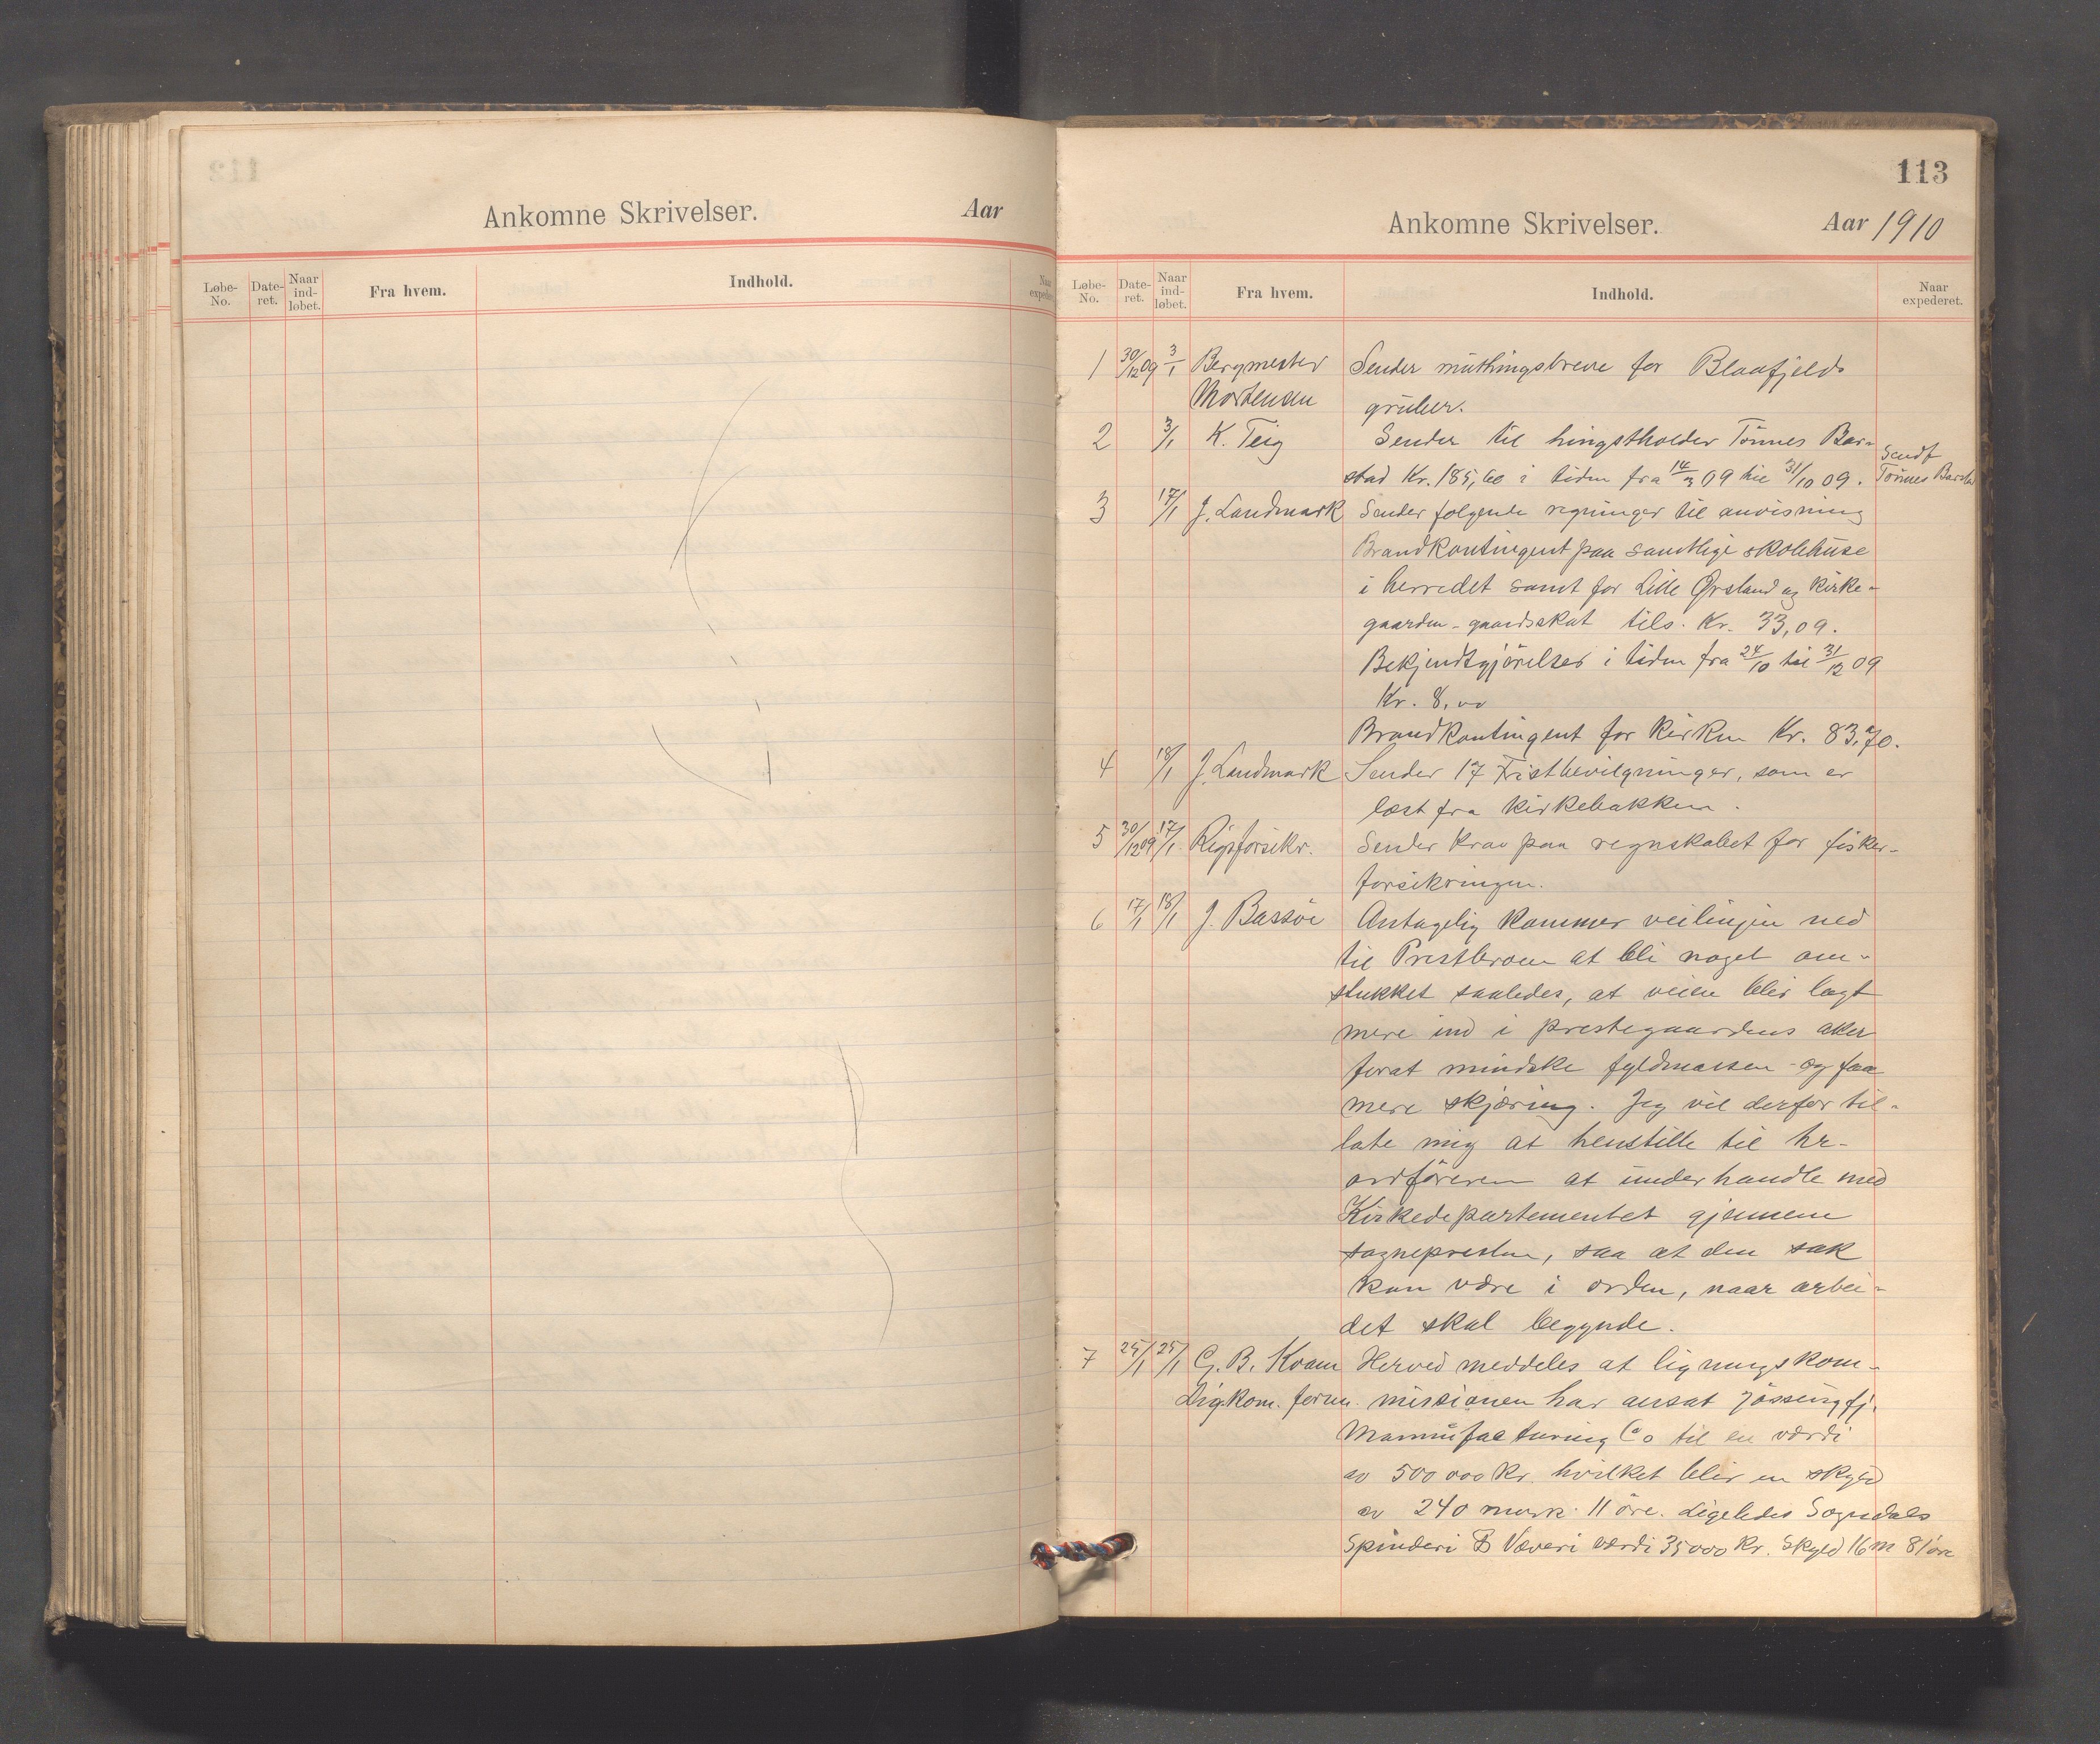 Ankomne Skrivelser. Aar
Løbe-No. Date-ret. Naar ind-løbet. Fra hvem. Indhold. Naar expederet.
113
Ankomne Skrivelser. Aar 1910
Løbe-No. Date-ret. Naar ind-løbet. Fra hvem. Indhold. Naar expederet.
1 30/12 09 3/1 Bergmester Sender muthingsbreve for Blaafjelds
Mortensen gruber.
2 3/1 K. Teig Sender til hingstholder Tönnes Bar- Sendt
stad Kr. 185,60 i tiden fra 14/3 09 til 31/10 09. Tönnes Barstad
3 17/1 J. Landmark Sender følgende regninger til anvisning
Brandkontingent paa samtlige skolehuse
i herredet samt for Lille Ørsland og kirke-
gaarden - gaardsskat tils. Kr. 33,09.
Bekjendtgjörelser i tiden fra 24/10 til 31/12 09
Kr. 8,00
Brandkontingent for kirken Kr. 83,70.
4 18/1 J. Landmark Sender 17 Fristbevilgninger, som er
læst fra kirkebakken.
5 30/12 09 17/1 Rigsforsikr. Sender krav paa regnskabet for fisker-
forsikringen.
6 17/1 18/1 J. Bassöe Antagelig kommer veilinjen ned
til Prestbroen at bli noget om-
stukket saaledes, at veien blir lagt
mere ind i prestegaardens aker
forat mindske fyldmassen og faa
mere skjæring. Jeg vil derfor til-
late mig at henstille til hr.
ordföreren at underhandle med
Kirkedepartementet gjennem
sognepresten, saa at den sak
kan være i orden, naar arbei-
det skal begynde.
7 25/1 25/1 G. B. Kvam Herved meddeles at ligningskom-
Ligkom. form. missionen har ansat Jössingfj.
Mannufacturing Co til en værdi
av 500 000 Kr hvilket blir en skyld
av 240 mark 11 öre. Ligeledes Sogndals
Spinderi & Væveri værdi 35000 kr. Skyld 16 m 81 öre